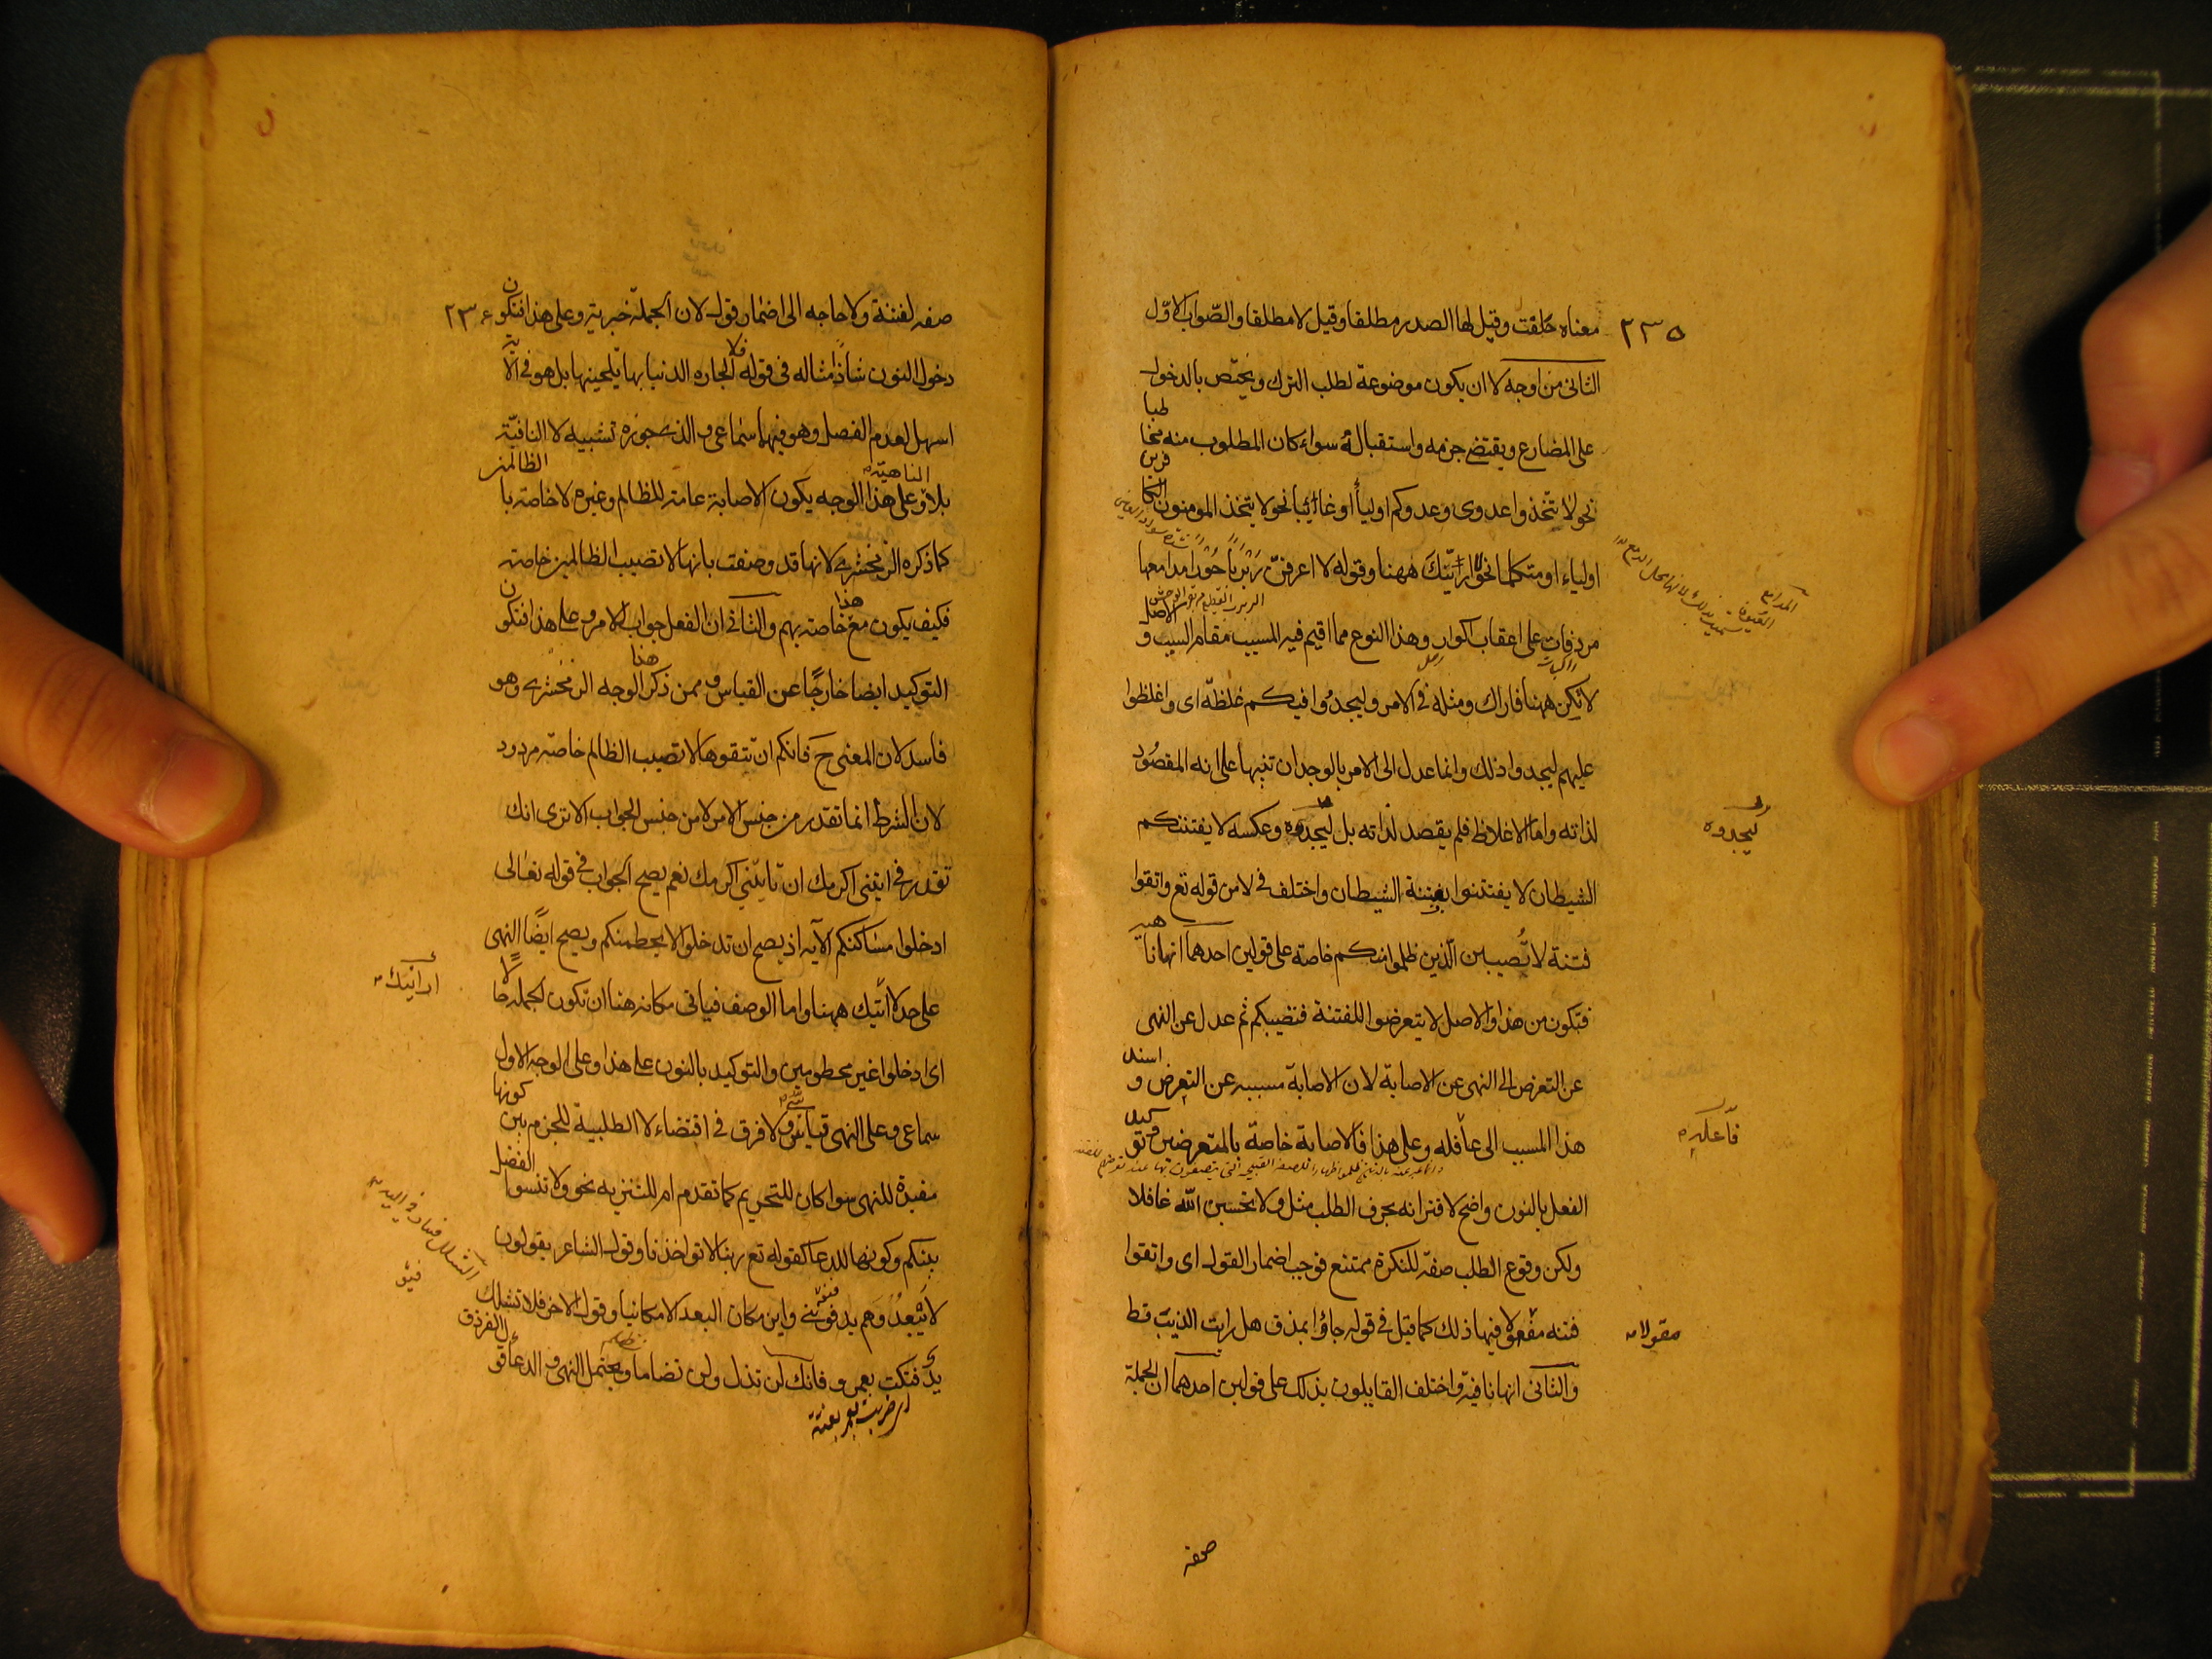 ٢٣٥
معناه خلقت وقيل لها الصدر مطلقا وقيل لا مطلقا والصّواب الاوّل
الثانى من اوجه لا ان يكون موضوعة لطلب الترك ويختص بالدخول
على المضارع ويقتضى جزمه واستقباله سواء كان المطلوب منه مخاطبا
نحو لا تتّخذوا عدوى وعدوكم اولياء او غائبا نحو لا يتخذ المومنون الكافرين
اولياء او متكلما نحو لا ارايّنك ههنا وقوله لا اعرفنّ ربربا حورا مدامعها
مردفات على اعقاب اكوار وهذا النوع مما اقيم فيه المسبب مقام السبب والاصل
لا تكن ههنا فاراك ومثله فى الامر وليجدوا فيكم غلظة اى واغلظوا
عليهم ليجدوا ذلك وانما عدل الى الامر بالوجدان تنبيها على انه المقصود
لذاته واما الاغلاظ فلم يقصد لذاته بل ليجدوه وعكسه لا يفتننكم
ليجدوه
الشيطان لا يفتتنوا بفتنة الشيطان واختلف فى لا من قوله تع واتقوا
فتنة لا تُصيبن الّذين ظلموا منكم خاصة على قولين احدهما انها ناهية
فتكون من هذا والاصل لا يتعرضوا للفتنة فتصيبكم ثم عدل عن النهى
عن التعرض الى النهى عن الاصابة لان الاصابة مسببه عن التعرض واسند
هذا المسبب الى فاعله وعلى هذا فالاصابة خاصة بالمتعرضين وتوكيد
فاعله
الفعل بالنون واضح لاقترانه بحرف الطلب مثل ولا تحسبن الله غافلا
ولكن وقوع الطلب صفة للنكرة ممتنع فوجب اضمار القول اى واتقوا
فتنه مقولا فيها ذلك كما قيل فى قوله جاؤا بمذق هل رايت الذيب قط
مقولا
والثانى انها نافية واختلف القايلون بذلك على قولين احدهما ان الجملة
صفه
٢٣٦
صفه لفتنة ولا حاجه الى اضمار قول لان الجملة خبرية وعلى هذا فتكون
دخول النون شاذا مثاله فى قوله فلا الجاره الدنيا بها تلحينها بل هو فى الآية
اسهل لعدم الفصل وهو فيهما سماعى والذى جوزه تشبيه لا النافية
بلا الناهية وعلى هذا الوجه يكون الاصابة عامة للظالم وغيره لا خاصة بالظالمين
كما ذكره الزمخشرى لانها قد وصفت بانها لا تصيب الظالمين خاصة
فكيف يكون مع هذا خاصة بهم والثانى ان الفعل جواب الامر وعلى هذا فتكون
التوكيد ايضا خارجًا عن القياس وممن ذكر هذا الوجه الزمخشرى وهو
فاسد لان المعنى ح فانكم ان تتقوها لا تصيب الظالم خاصة مردود
لان الشرط انما تقدر من جنس الامر لا من جنس الجواب الا ترى انك
تقدر فى ايتنى اكرمك ان تاتنى اكرمك نعم يصح الجواب فى قوله تعالى
ادخلوا مساكنكم الآية اذ يصح ان تدخلوا لا يحطمنكم ويصح ايضًا النهى
على حد لا ارينك ههنا واما الوصف فياتى مكانه هنا ان تكون الجمله حالا
ارانيك
اى ادخلوا غير محطومين والتوكيد بالنون على هذا وعلى الوجه الاول
سماعى وعلى النهى قياسى ولا فرق فى اقتضاء لا الطلبية للجزم بين كونها
مفيدة للنهى سوا كان للتحريم كما تقدم ام للتنزيه نحو ولا تنسوا الفضل
بينكم وكونها للدعا كقوله تع ربنا لا تواخذنا وقول الشاعر يقولون
لا تَبْعدُ وَهم يدفنونى واين مكان البعد الا مكانيا وقول الاخر فلا تشلل
يد فتكت بعمرو فانك لن تذل ولن تضاما ويحتمل النهى والدعا قول الفرزدق